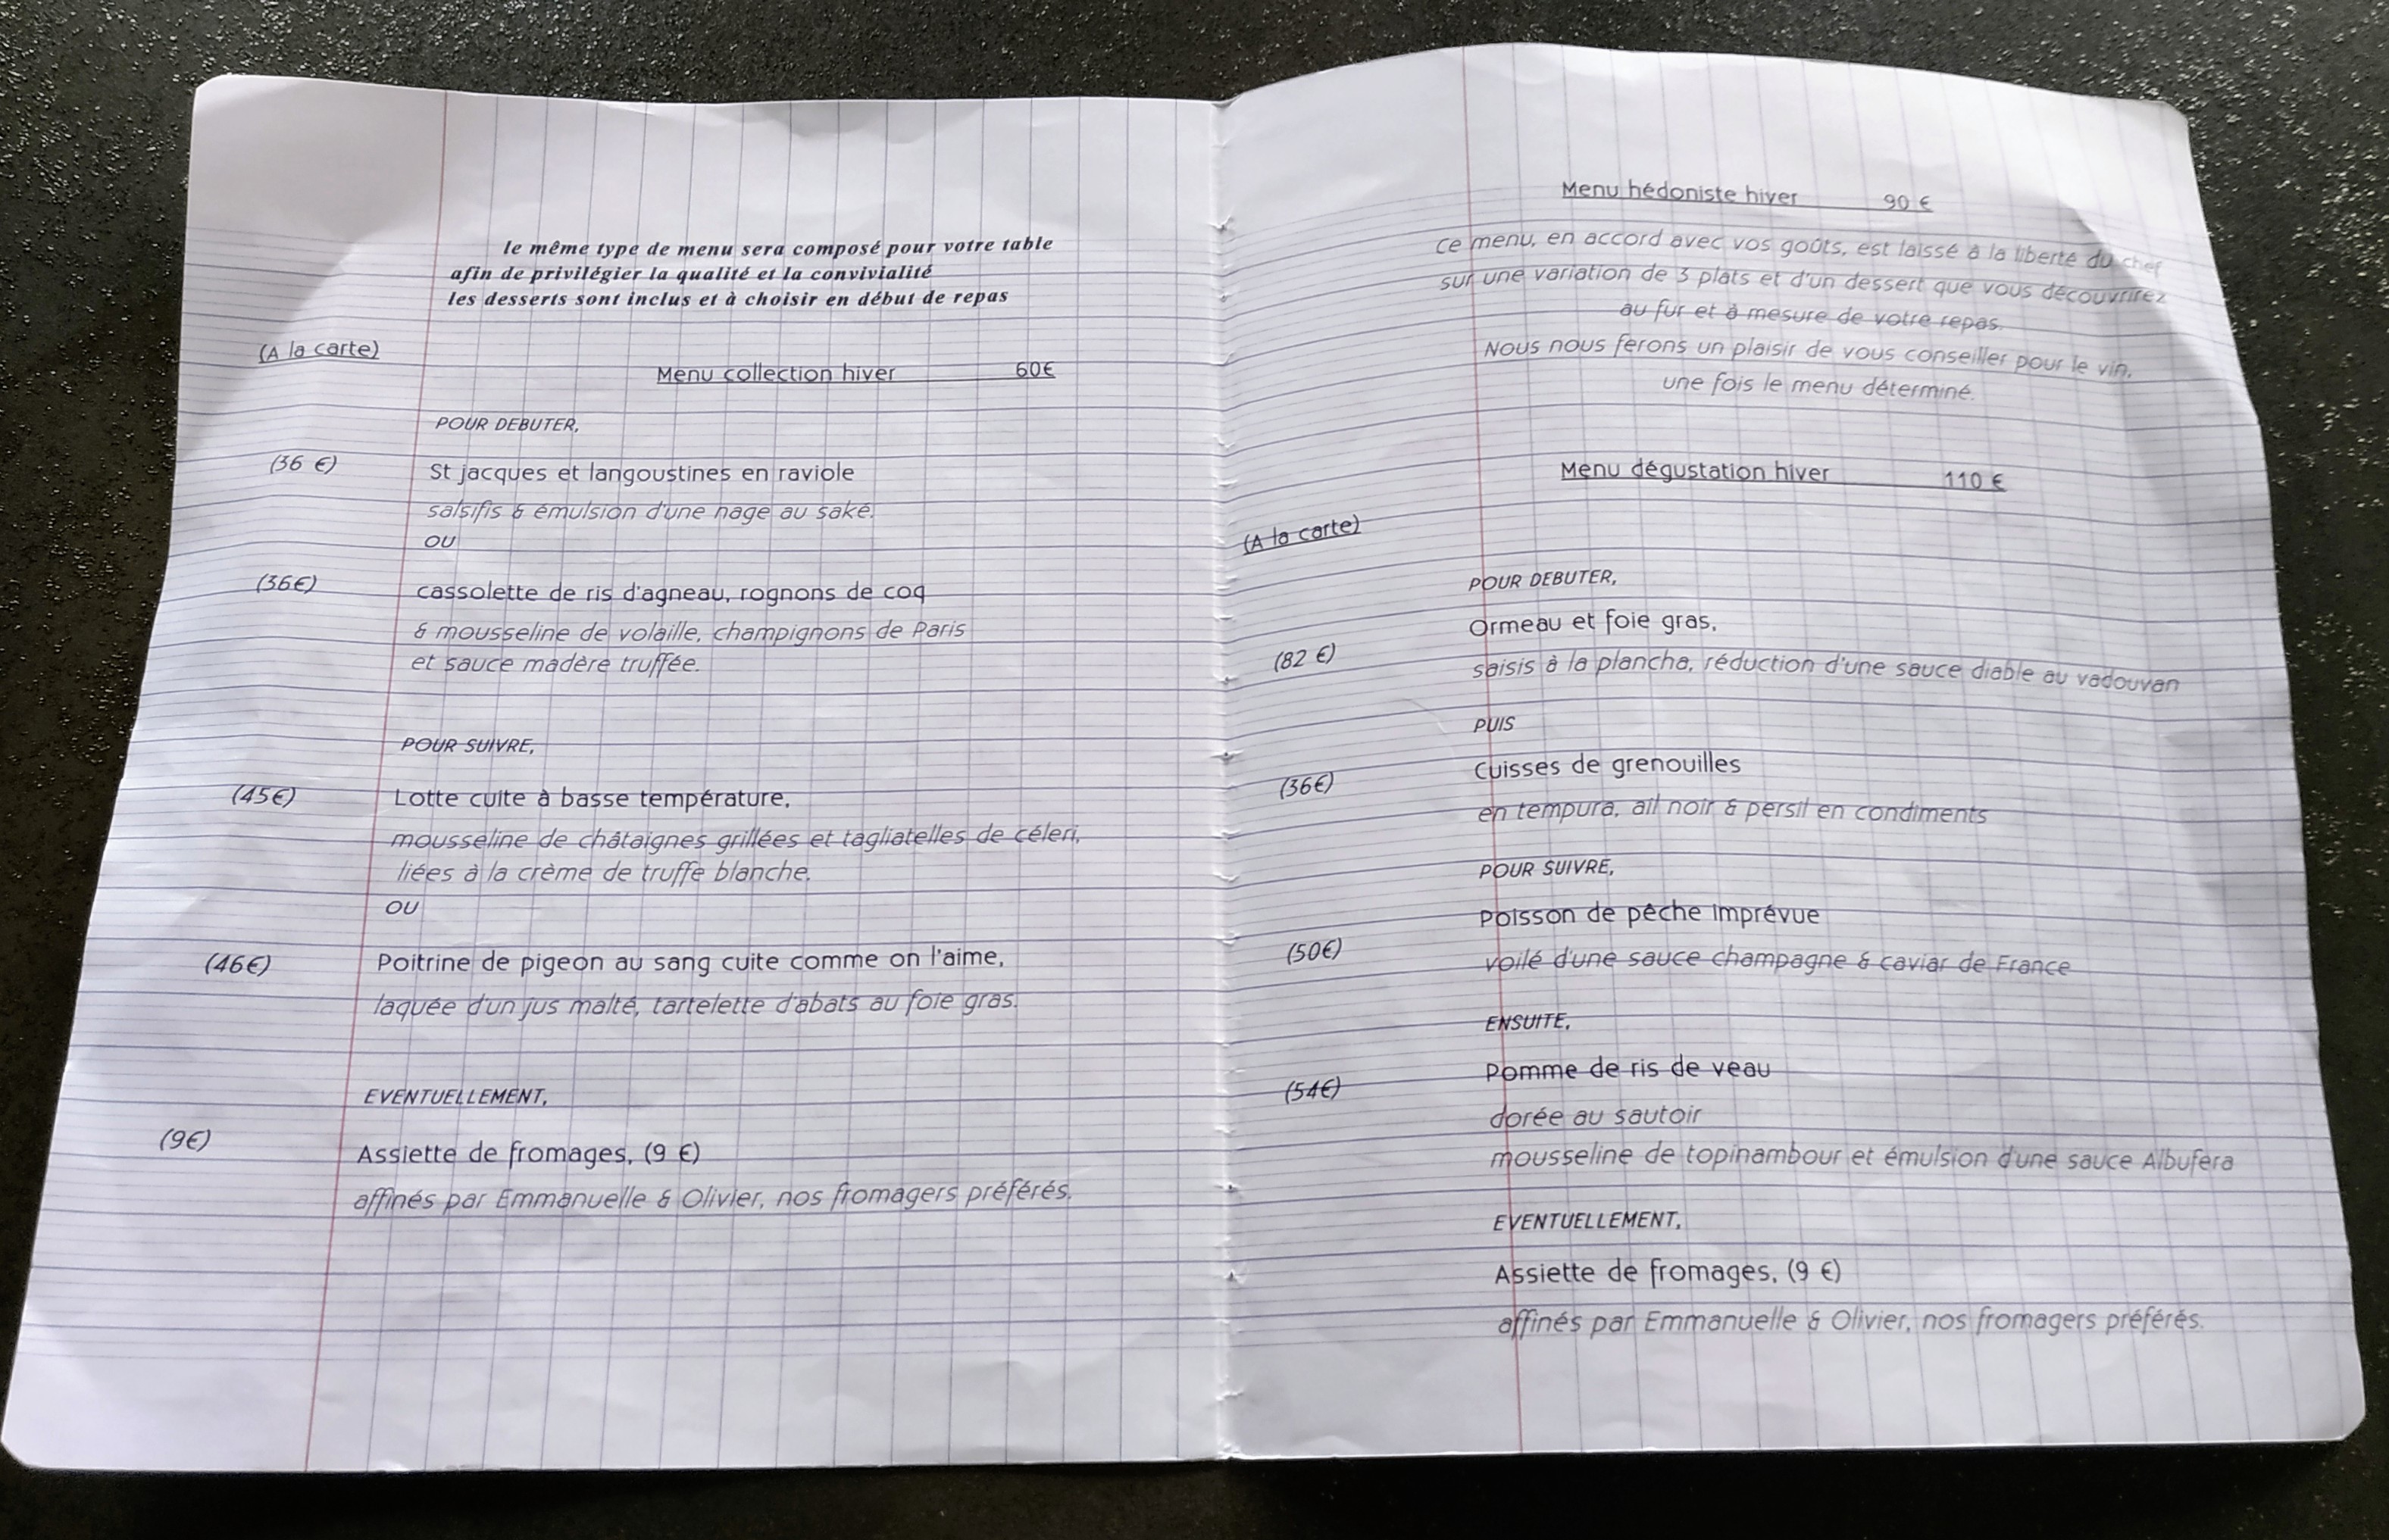 le même type de menu sera composé pour votre table
afin de privilégier la qualité et la convivialité
les desserts sont inclus et à choisir en début de repas
(A la carte)
Menu collection hiver 60€
POUR DEBUTER,
(36 €) St jacques et langoustines en raviole
salsifis & émulsion d'une nage au saké.
OU
(36€) cassolette de ris d'agneau, rognons de coq
& mousseline de volaille, champignons de Paris
et sauce madère truffée.
POUR SUIVRE,
(45€) Lotte cuite à basse température,
mousseline de châtaignes grillées et tagliatelles de céleri,
liées à la crème de truffe blanche.
OU
(46€) Poitrine de pigeon au sang cuite comme on l'aime,
laquée d'un jus malté, tartelette d'abats au foie gras.
EVENTUELLEMENT,
(9€) Assiette de fromages, (9 €)
affinés par Emmanuelle & Olivier, nos fromagers préférés.
Menu hédoniste hiver 90 €
Ce menu, en accord avec vos goûts, est laissé à la liberté du chef
sur une variation de 3 plats et d'un dessert que vous découvrirez
au fur et à mesure de votre repas.
Nous nous ferons un plaisir de vous conseiller pour le vin,
une fois le menu déterminé.
Menu dégustation hiver 110 €
(A la carte)
POUR DEBUTER,
Ormeau et foie gras,
(82 €) saisis à la plancha, réduction d'une sauce diable au vadouvan
PUIS
Cuisses de grenouilles
(36€) en tempura, ail noir & persil en condiments
POUR SUIVRE,
Poisson de pêche imprévue
(50€) voilé d'une sauce champagne & caviar de France
ENSUITE,
Pomme de ris de veau
(54€) dorée au sautoir
mousseline de topinambour et émulsion d'une sauce Albufera
EVENTUELLEMENT,
Assiette de fromages, (9 €)
affinés par Emmanuelle & Olivier, nos fromagers préférés.